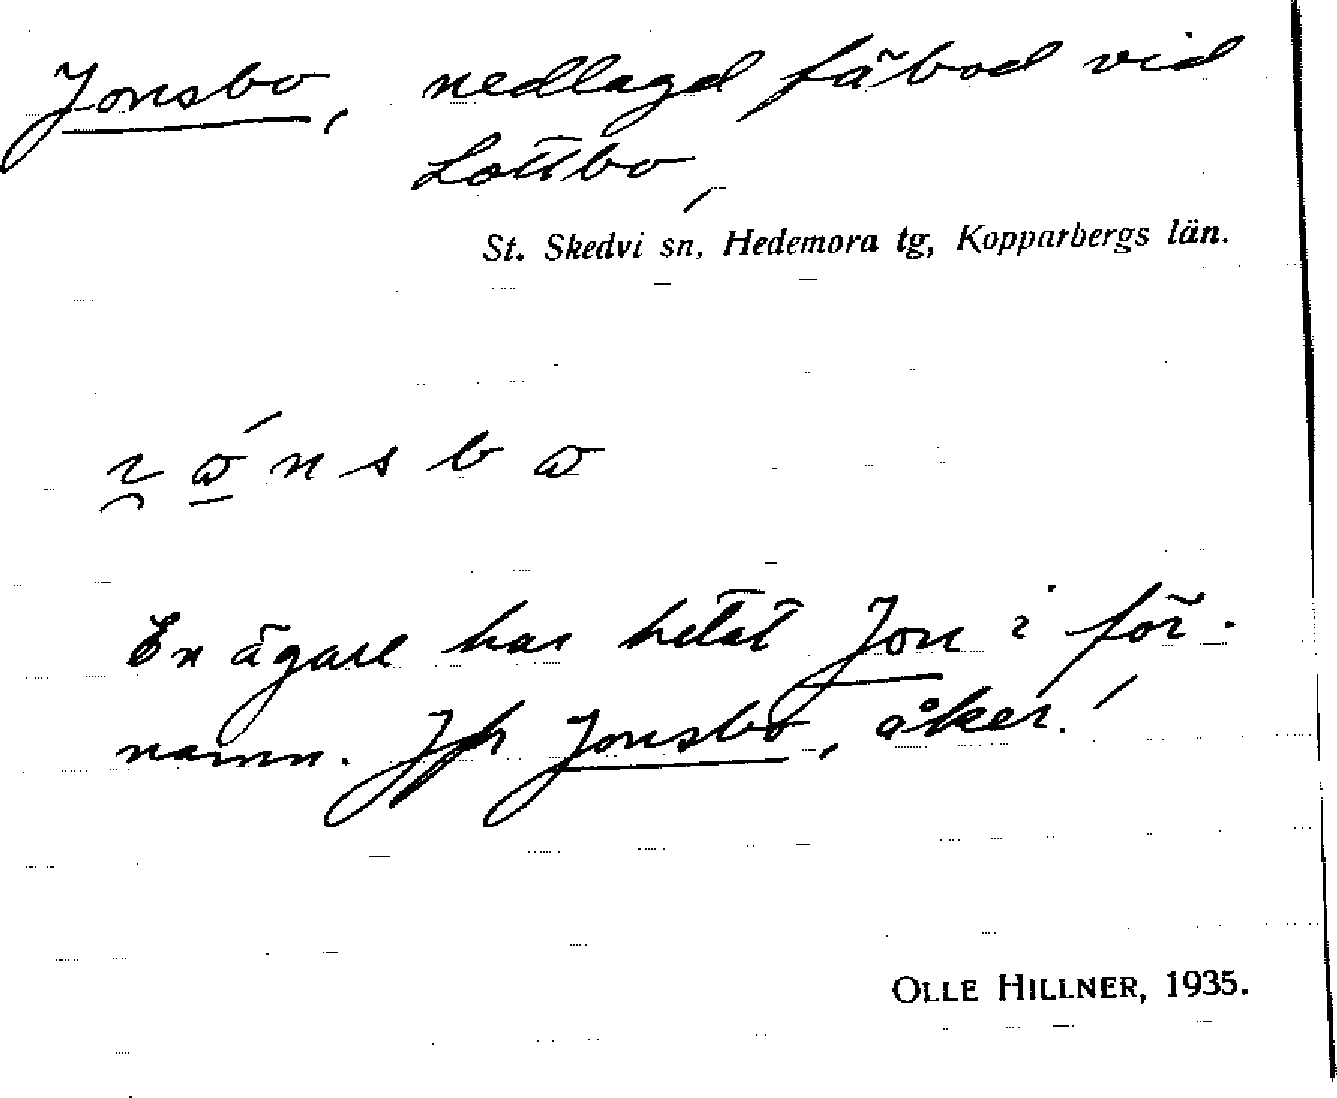 Jonsbo, nedlagd fäbod vid
Lottbo,
St. Skedvi sn, Hedemora tg, Kopparbergs län.
En ägare har hetat Jon i för-
namn. Jfr Jonsbo, åker!
OLLE HILLNER, 1935.